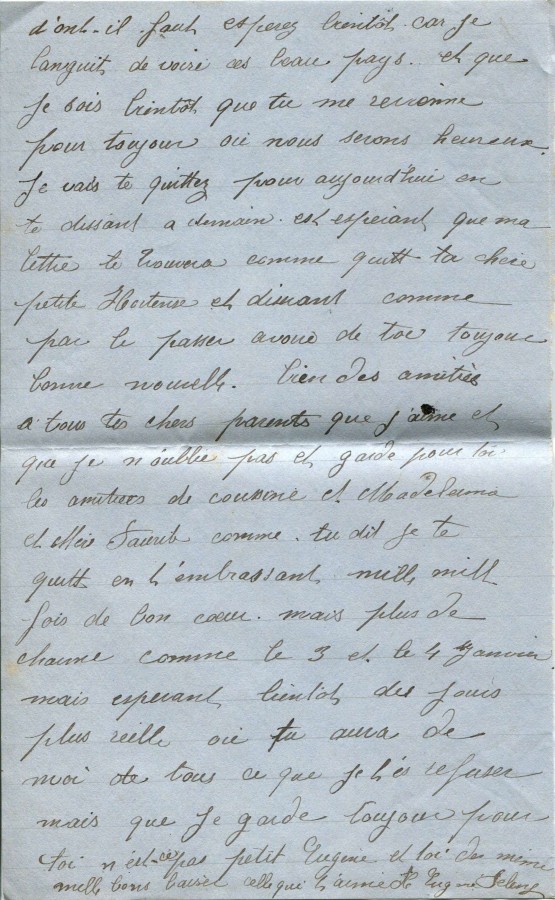 d'ont il faut esperez bientôt car je
languit de voire ces beau pays. et que
je sois bientôt que tu me revienne
pour toujour où nous serons heureux.
Je vais te quittez pour aujourd'hui en
te dissant a demain. est esperant que ma
lettre te trouvera comme quitt ta chere
petite Hortense et disirant comme
par le passer avoir de toi toujour
bonne nouvelle. bien des amitiés
a tous tes chers parents que j'aime et
que je n'oublie pas et garde pour toi
les amitiers de cousine et Madelena
et Mlle comme tu dit je te
quitt en t'embrassant mille mill
fois de bon cœur. mais plus de
chaume comme le 3 et le 4 Janvier
mais esperant bientôt des jours
plus reille où tu aura de
moi de tous ce que je t'és refuser
mais que je garde toujour pour
toi n'est-ce pas petit Eugene et toi de
mille bons baiser celle qui t'aime H Eugene